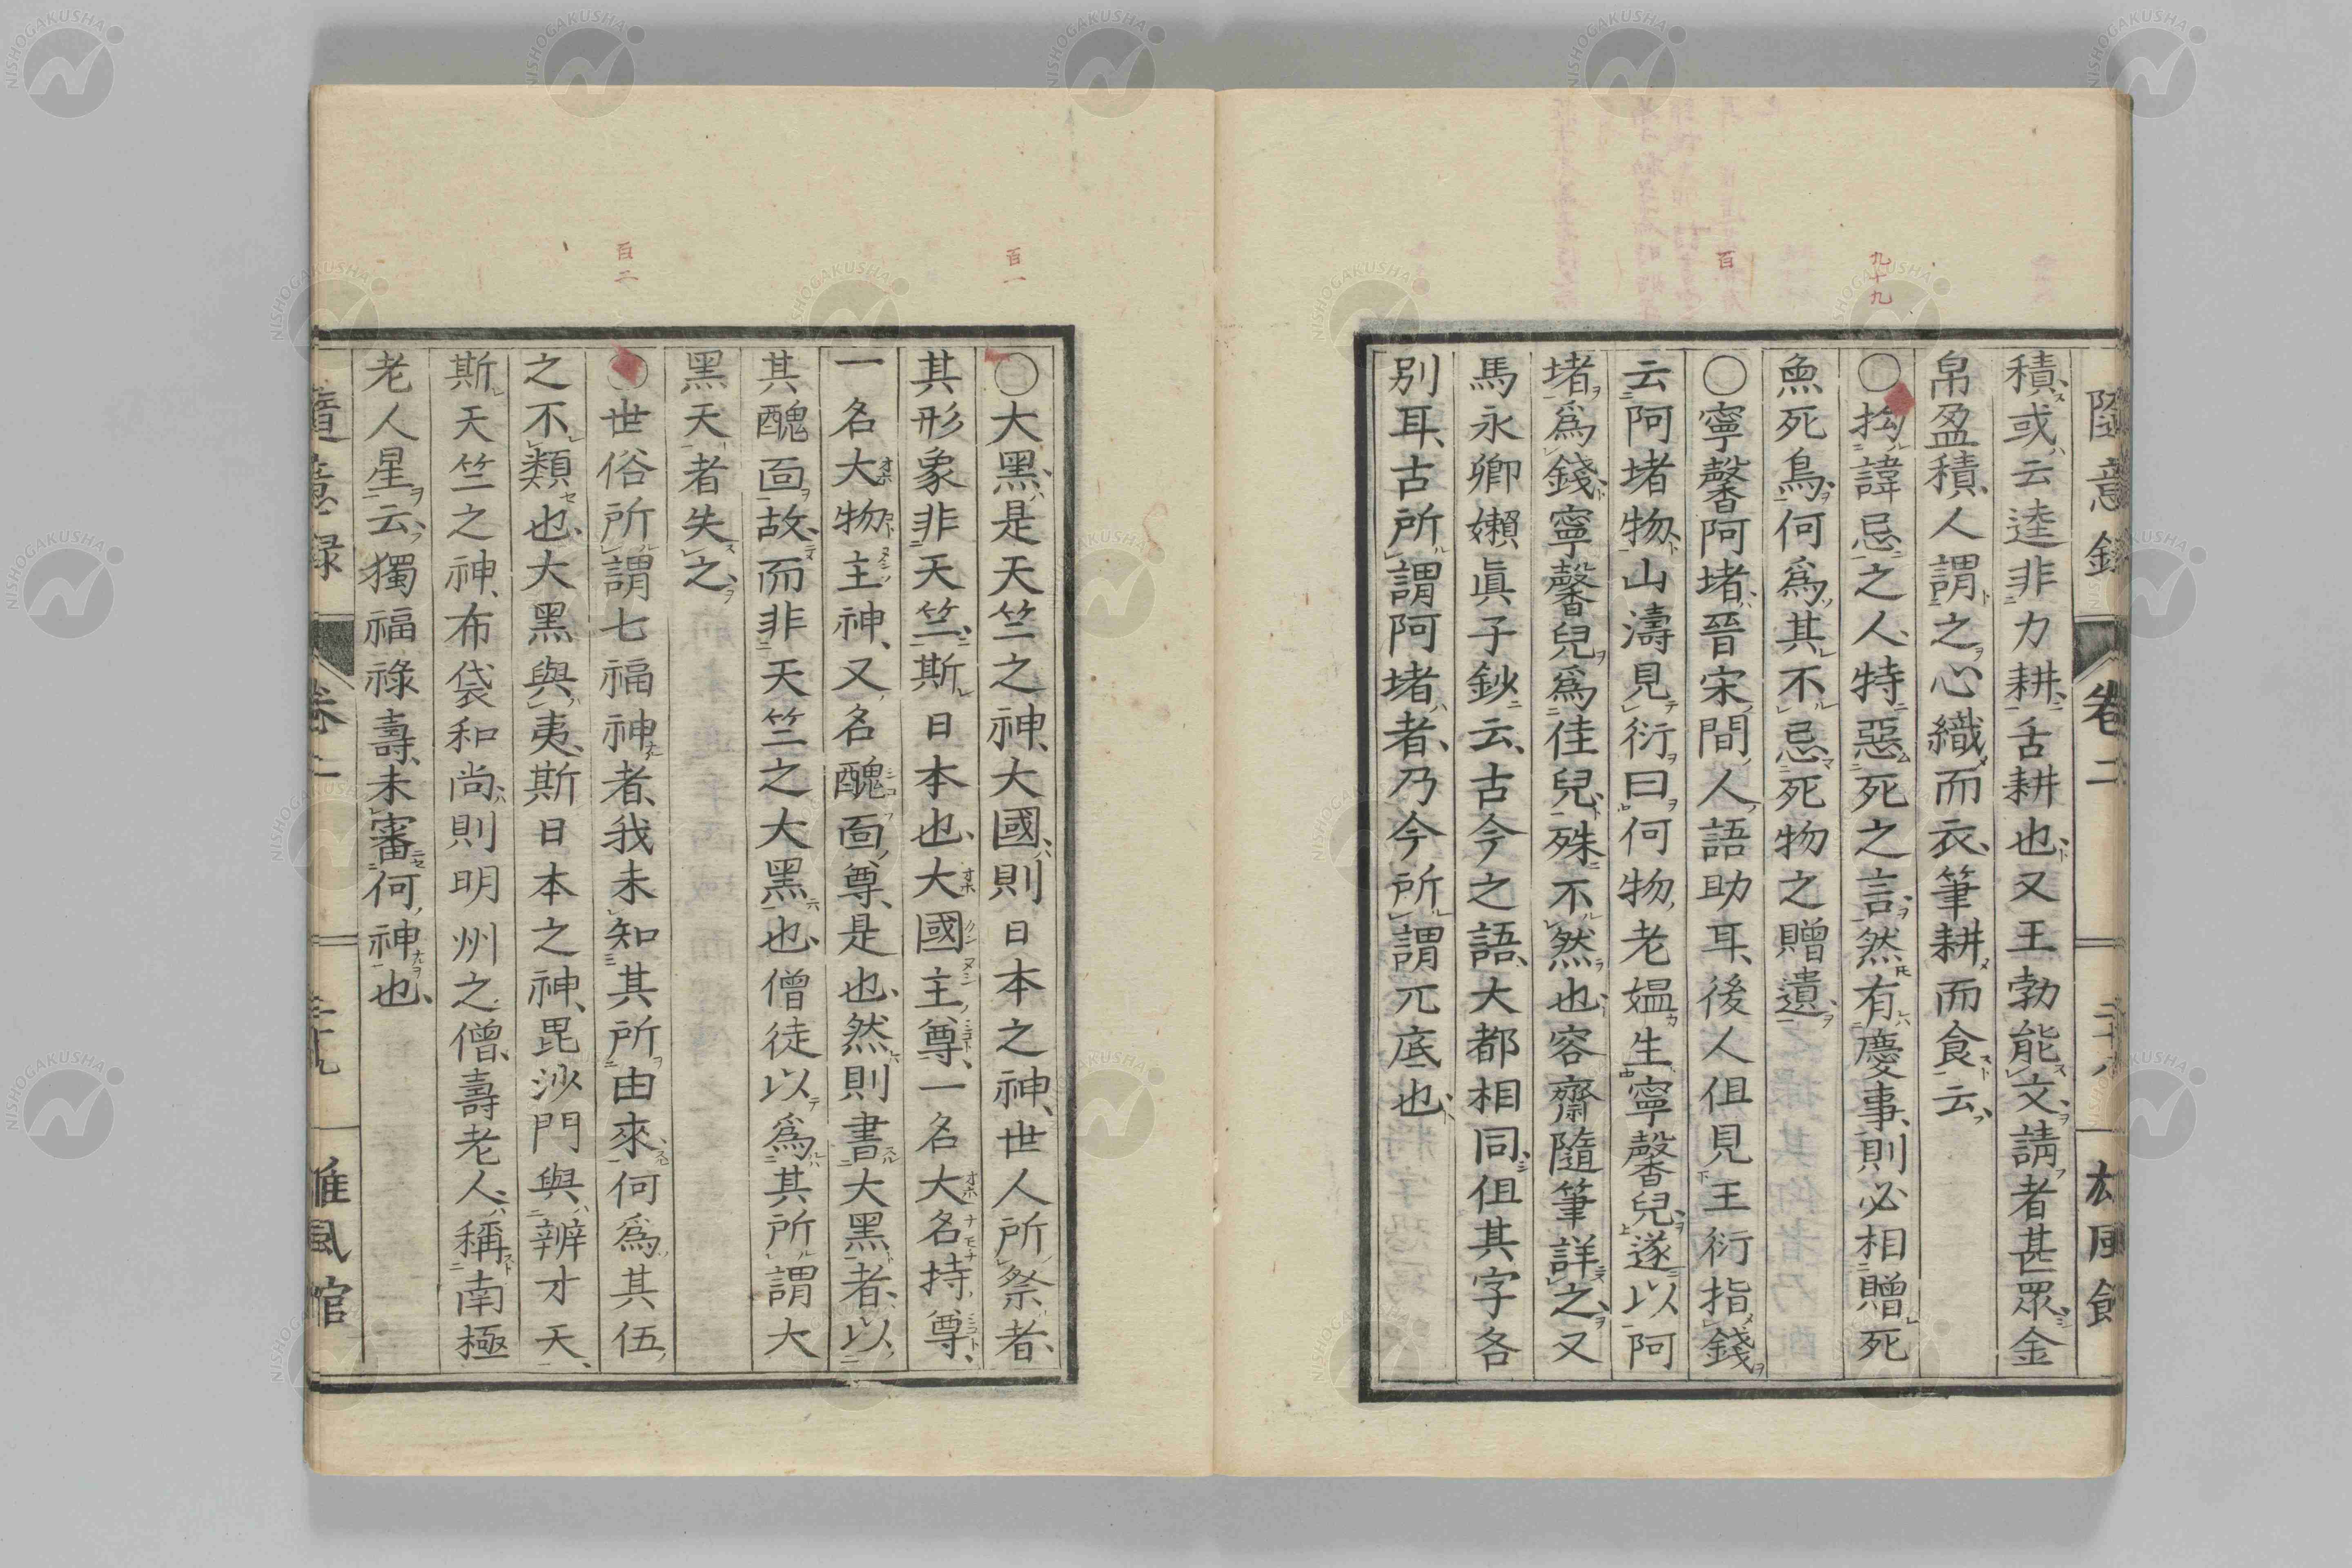 隨意錄 卷二
積或云逵非力耕舌耕也又王勃能文請者甚眾金
帛盈積人謂之心織而衣筆耕而食云
九十九
○拘諱忌之人特惡死之言然有慶事則必相贈死
魚死鳥何爲其不忌死物之贈遺
百
○寧馨阿堵晉宋間人語助耳後人但見王衍指錢
云阿堵物山濤見衍曰何物老媼生寧馨兒遂以阿
堵爲錢寧馨兒爲佳兒殊不然也容齋隨筆詳之又
馬永卿嬾眞子鈔云古今之語大都相同但其字各
別耳古所謂阿堵者乃今所謂兀底也
百一
○大黑是天竺之神大國則日本之神世人所祭者
其形象非天竺斯日本也大國主尊一名大名持尊
一名大物主神又名醜面尊是也然則書大黑者以
其醜面故而非天竺之大黑也僧徒以爲其所謂大
黑天者失之
百二
○世俗所謂七福神者我未知其所由來何爲其伍
之不類也大黑與夷斯日本之神毘沙門與辨才天
斯天竺之神布袋和尚則明州之僧壽老人稱南極
老人星云獨福祿壽未審何神也
隨意録 卷二 雄風館
NISHOGAKUSHA